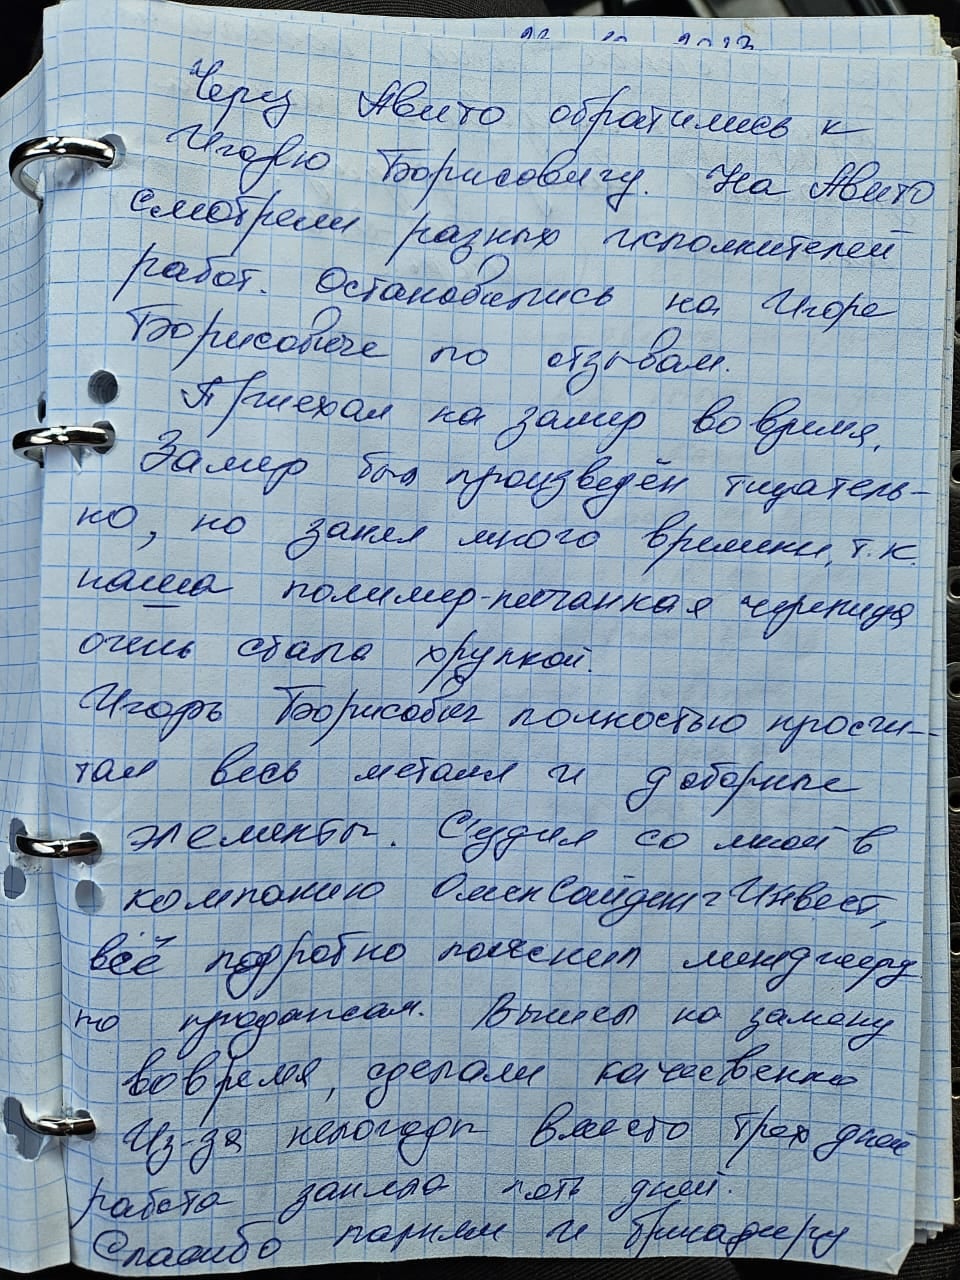 Через Авито обратились к
Игорю Борисовичу. На Авито
смотрели разных исполнителей
работ. Остановились на Игоре
Борисовиче по отзывам.
Приехал на замер вовремя.
Замер был произведён тщатель-
но, но занял много времени, т.к.
наша полимер-песчанная черепица
очень стала хрупкой.
Игорь Борисович полностью просчи-
тал весь металл и доборные
элементы. Съездил со мной в
компанию ОмскСайдингИнвест,
всё подробно пояснил менеджеру
по продажам. Вышли на замену
вовремя, сделали качественно
Из-за непогоды вместо трех дней
работа заняла пять дней.
Спасибо парням и бригадиру